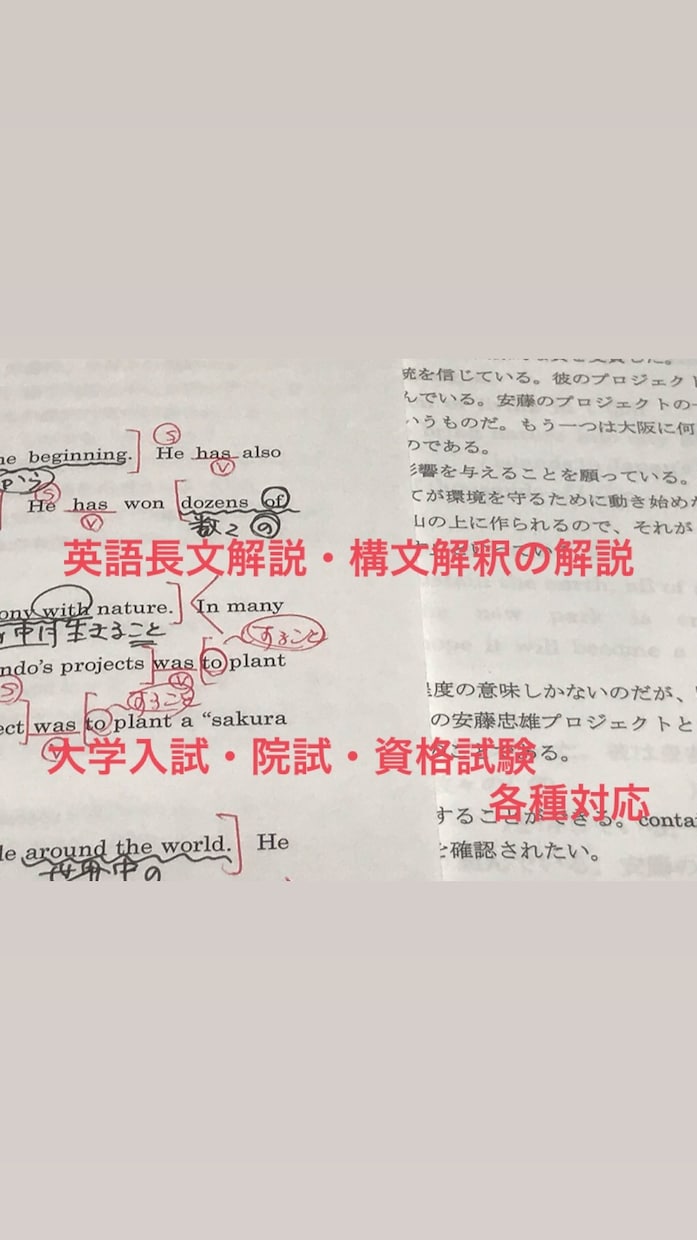 he beginning.] He has also
S
V
から
S
He has won [dozens of
V
数々の
英語長文解説・構文解釈の解説
ony with nature.] In many
中に生きること
すること
ndo's projects was to plant
S
V
すること
ect] was to plant a “sakura
V
大学入試・院試・資格試験
各種対応
le around the world.] He
世界中の
統を信じている。彼のプロジェクト
んでいる。安藤のプロジェクトの
いうものだ。もう一つは大阪に何
のである。
影響を与えることを願っている。
てが環境を守るために動き始め
山の上に作られるので、それが
程度の意味しかないのだが、
の安藤忠雄プロジェクトと
ある。
することができる。contai
を確認されたい。